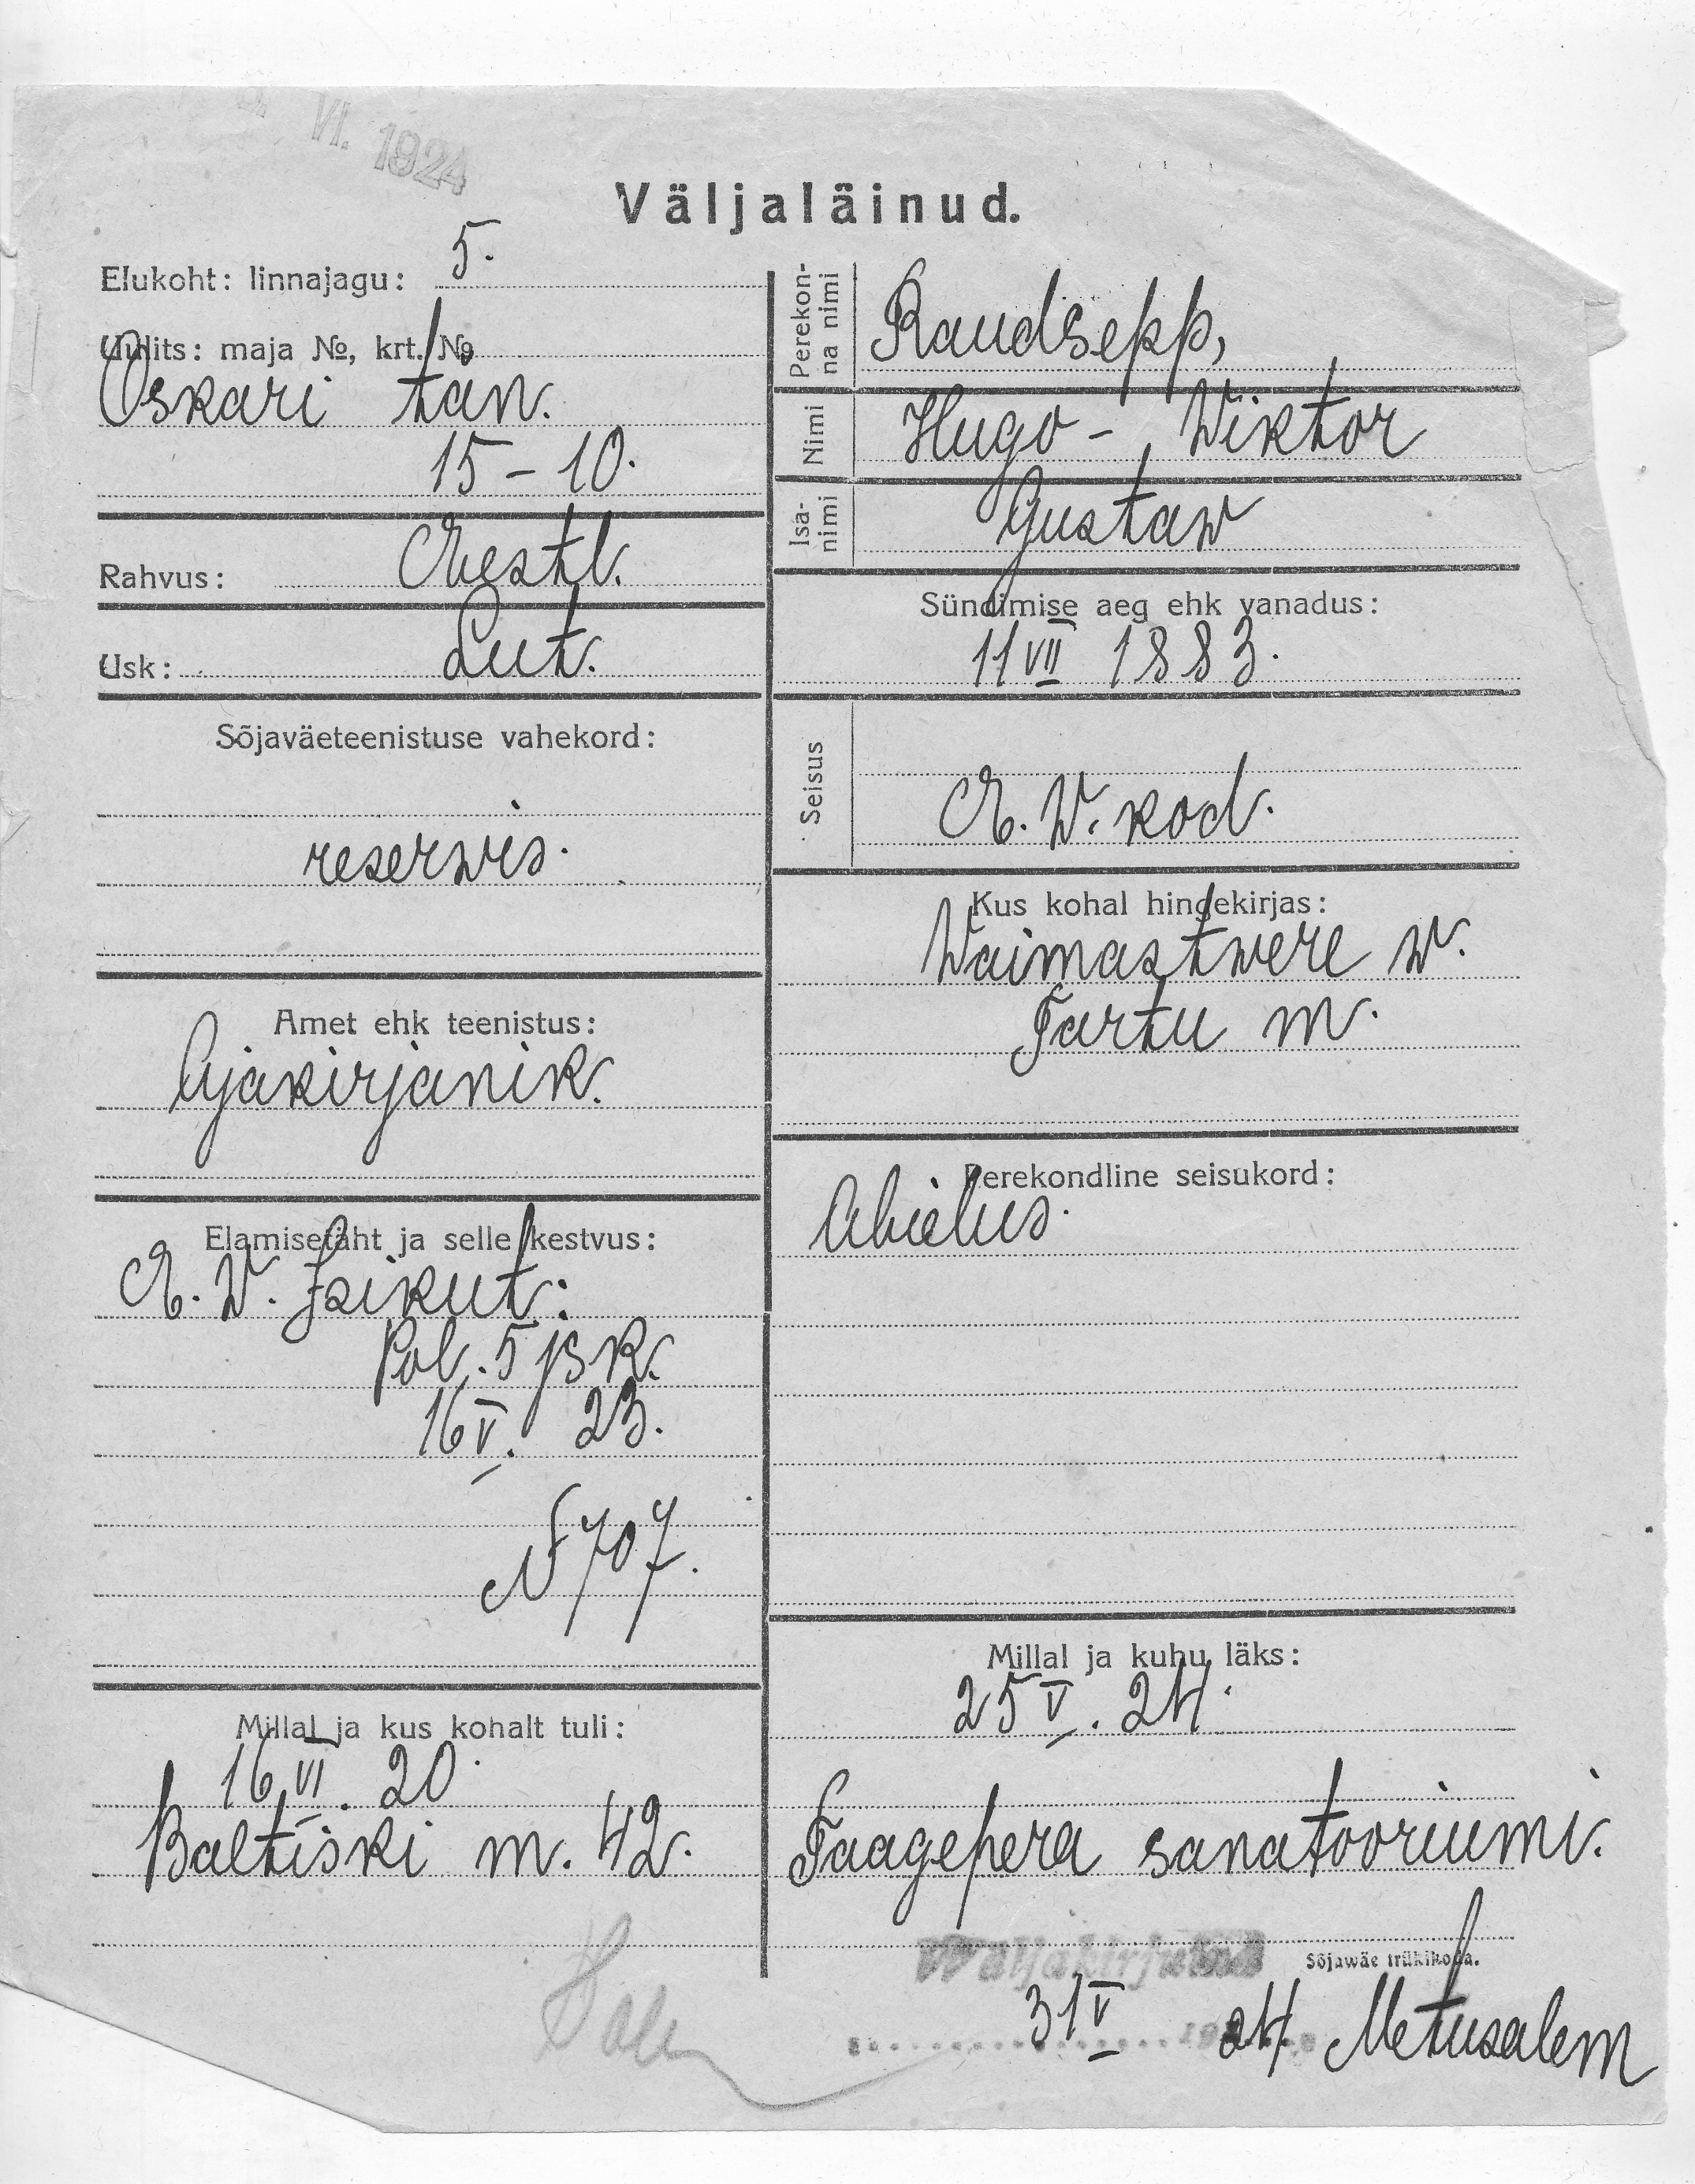 VI. 1924
Väljaläinud.
Elukoht: linnajagu: 5.
Uulits: maja №, krt. №
Oskari tän.
15-10.
Rahvus: Eestl.
Usk: Lut.
Sõjaväeteenistuse vahekord:
reserwis.
Amet ehk teenistus:
Ajakirjanik.
Elamisetäht ja selle kestvus:
E. W. Isikut:
Pol. 5 jsk.
16 V. 23.
N 707.
Millal ja kus kohalt tuli:
16 VI. 20.
Baltiski m. 42.
Perekonna nimi
Raudsepp,
Nimi
Hugo - Wiktor
Isanimi
Gustaw
Sündimise aeg ehk vanadus:
11 VII 1883.
Seisus
E. W. kod.
Kus kohal hingekirjas:
Waimastwere w.
Tartu m.
Perekondline seisukord:
Abielus.
Millal ja kuhu läks:
25 V. 24.
Taagepera sanatooriumi.
Wäljakirjutud
Sõjawäe trükikoda.
31 V 24 Metusalem